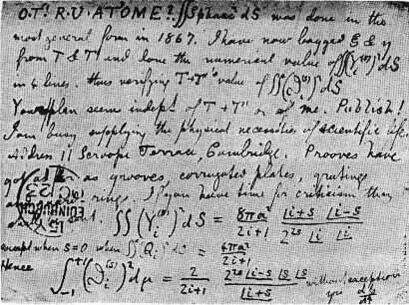 O.T'. R.U. AT'OME? ∬ Spharc² dS was done in the
most general form in 1867. I have now bagged ξ & η
from T & T' and done the numerical value of ∬(Y_i^{(s)})² dS
in 4 lines. thus verifying T+T''s value of ∬(ϑ_i^{(s)})² dS
Your plan seems indept. of T+T' or of me. Publish!
I am busy supplying the physical necessities of scientific life
address 11 Scroope Terrace, Cambridge. Prooves have
got as far as grooves, corrugated plates, gratings
rings. If you have time for criticism then
∬(Y_i^{(s)})² dS = 8πa²/(2i+1) |i+s |i-s / 2^{2s} |i |i
except when s=0 when ∬(Q_i)² dS = 4πa²/(2i+1)
Hence ∫_{-1}^{+1} (ϑ_i^{(s)})² dμ = 2/(2i+1) 2^{2s} |i-s |s |s / |i+s without exception
yrs dp/dt